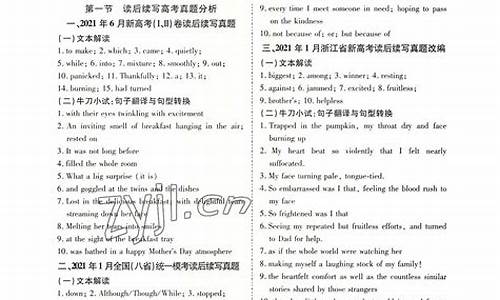 第一节 读后续写高考真题分析
一、2021 年 6 月新高考(Ⅰ,Ⅱ)卷读后续写真题
(一)文本解读
1. to make; 2. which; 3. came; 4. quietly;
5. while; 6. into; 7. mixture; 8. smoothly; 9. out;
10. panicked; 11. Thankfully; 12. a; 13. it;
14. burning; 15. had turned
(二)牛刀小试:句子翻译与句型转换
1. with their eyes twinkling with excitement
2. An inviting smell of breakfast hanging in the air; rested on
3. It was not long before
4. filled the whole room
5. What a big surprise (it is)
6. and goggled at the twins and the dishes
7. Lost in the delicious breakfast, with delightful tears streaming down her face
8. Melting her tears into smiles
9. at the sight of the breakfast tray
10. was bathed in a happy Mother's Day atmosphere
二、2021 年 1 月全国(八省)统一模考读后续写真题
(一)文本解读
1. down; 2. Although/Though/While; 3. stopped;
9. every time I meet someone in need; hoping to pass on the kindness
10. not because of; or; but because of
三、2021 年 1 月浙江省新高考读后续写真题改编
(一)文本解读
1. biggest; 2. among; 3. winner; 4. resting;
5. against; 6. jammed; 7. excited; 8. fruitless;
9. brother's; 10. helpless
(二)牛刀小试:句子翻译与句型转换
1. Trapped in the pumpkin, my throat dry and face burning up
2. My heart beat so violently that I felt nearly suffocated.
3. My face turning pale, tongue-tied.
4. So embarrassed was I that, feeling the blood rush to my face
5. So frightened was I that
6. Seeing my repeated but fruitless efforts, and turned to Dad for help.
7. as if the whole world were watching her
8. making myself a laughing stock of my family!
9. the heartfelt comfort as well as the countless similar stories shared by those strangers
zyjl.cn